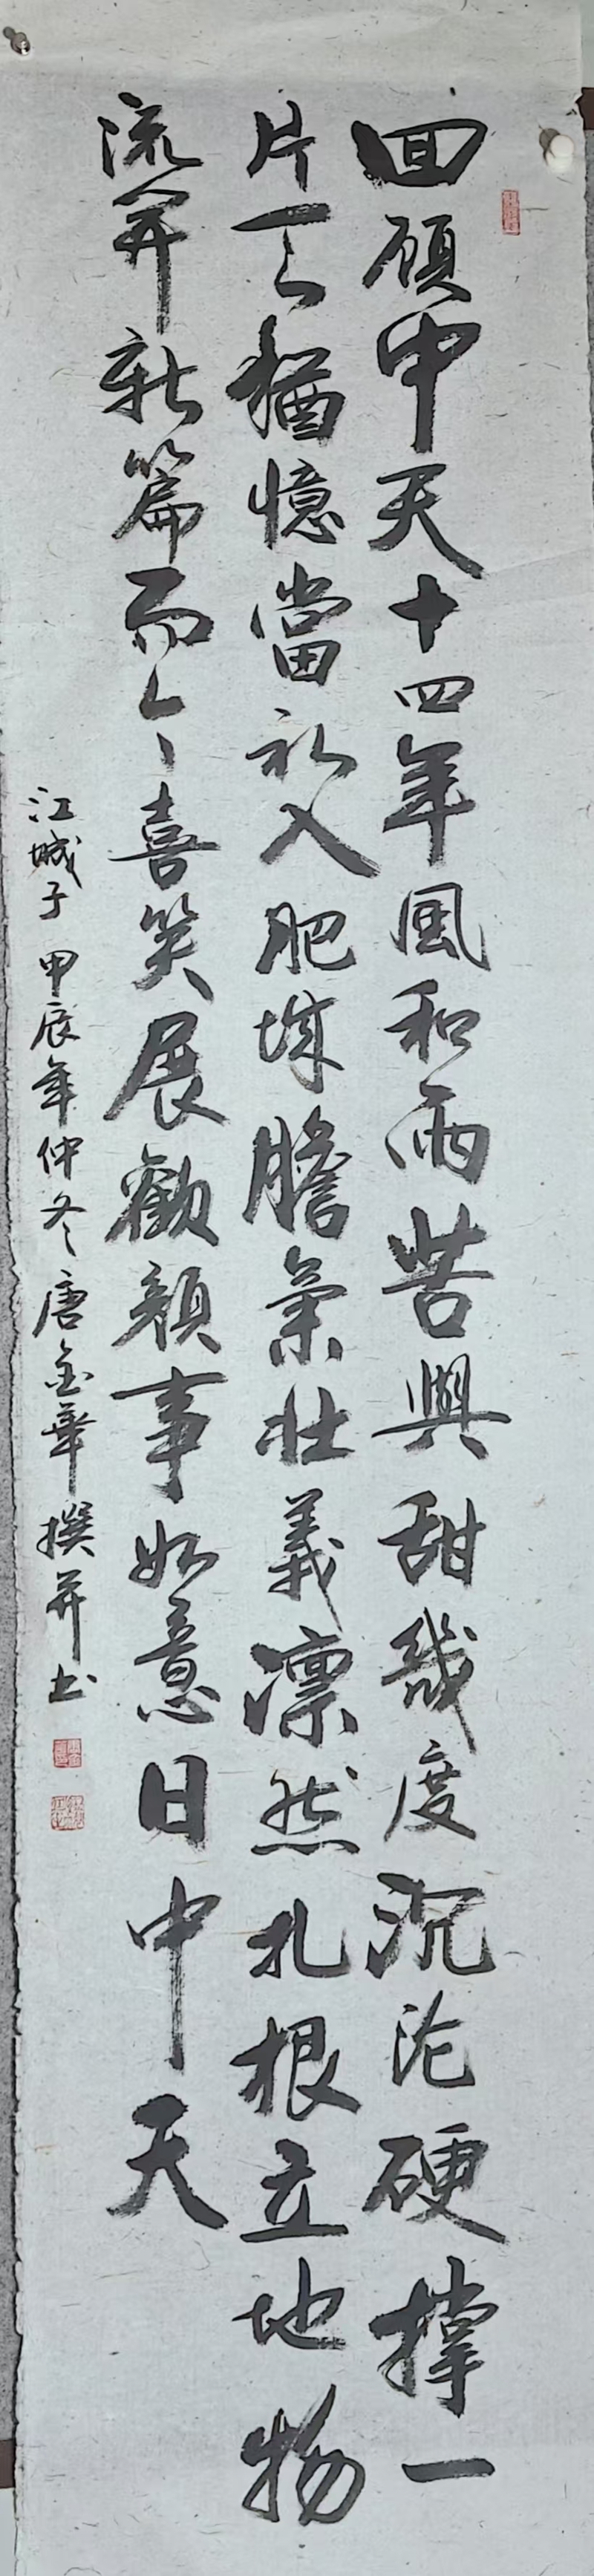 回顾中天十四年風和雨苦與甜幾度沉沦硬撑一
片天猶憶當初入肥城膽氣壮義凛然扎根立地物
流開新篇而今喜笑展歡顏事如意日中天
江城子 甲辰年仲冬 唐金華撰并书